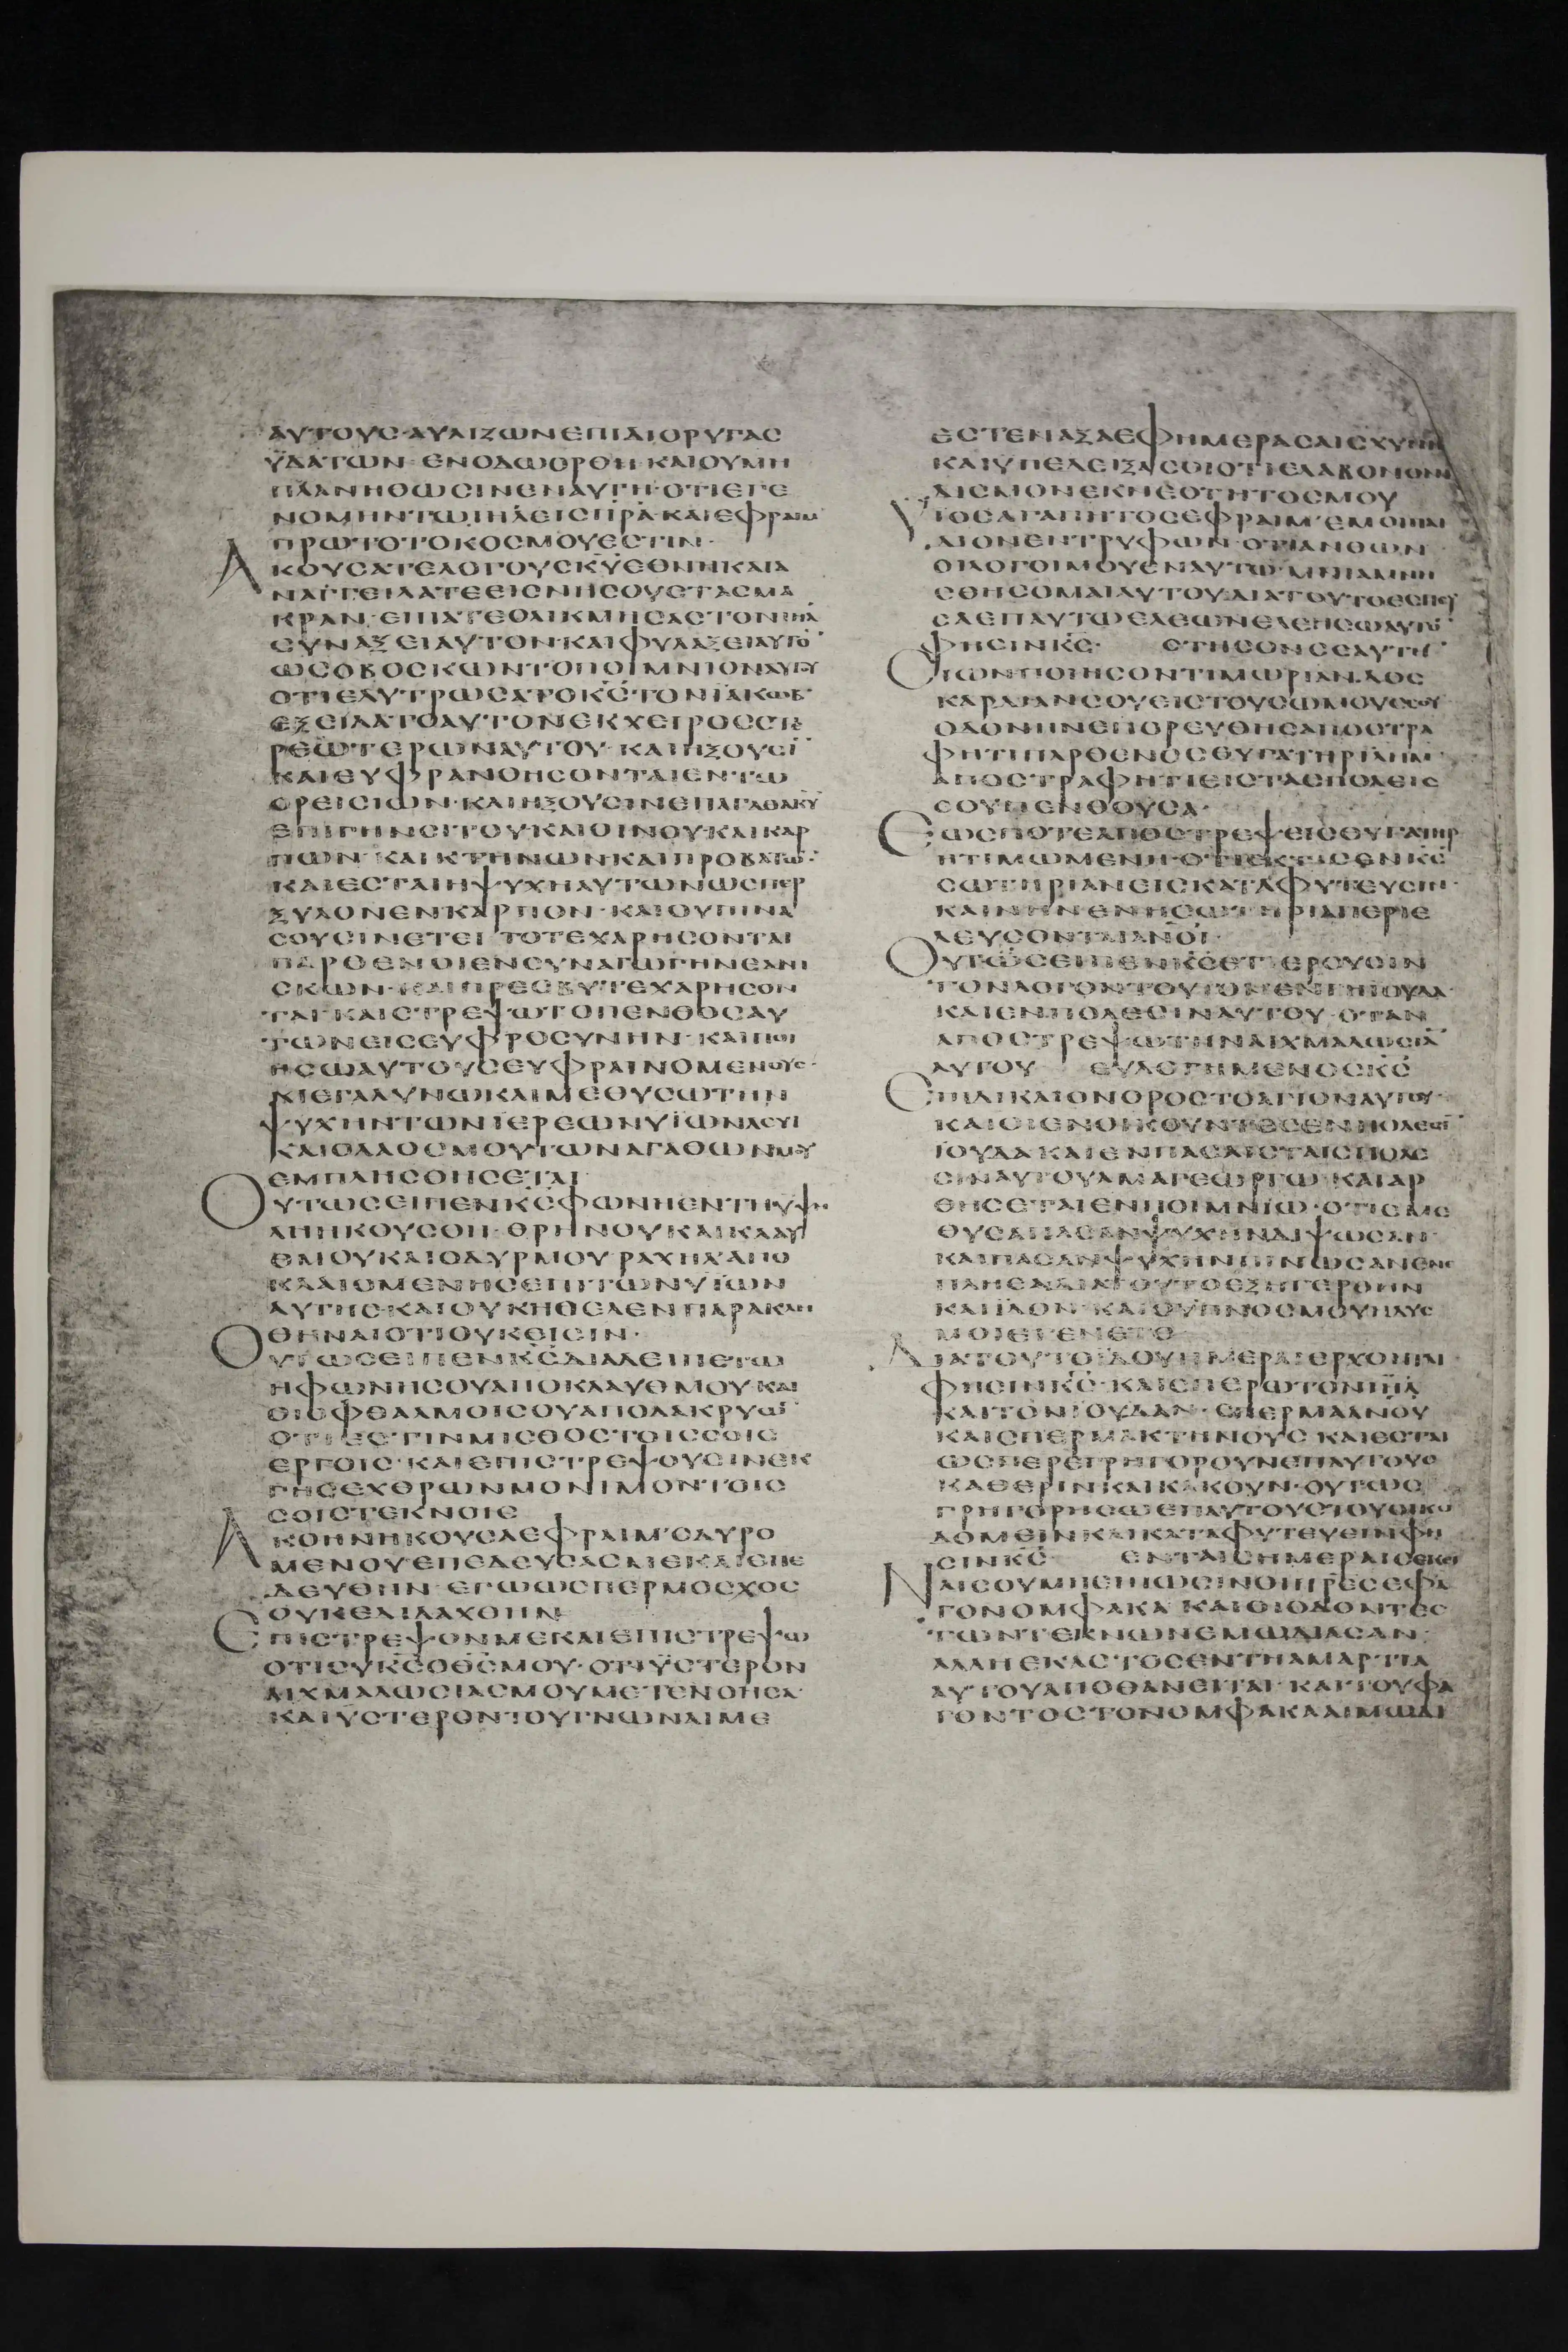 ΑΥΤΟΥΣ·ΑΥΛΙΖΩΝΕΠΙΔΙΟΡΥΓΑΣ
ΫΔΑΤΩΝ·ΕΝΟΔΩΟΡΘΗ·ΚΑΙΟΥΜΗ
ΠΛΑΝΗΘΩΣΙΝΕΝΑΥΤΗ·ΟΤΙΕΓΕ
ΝΟΜΗΝΤΩΙΗΛΕΙΣΠΡΑ·ΚΑΙΕΦΡΑΙΜ
ΠΡΩΤΟΤΟΚΟΣΜΟΥΕΣΤΙΝ·
ΑΚΟΥΣΑΤΕΛΟΓΟΥΣΚΥΕΘΝΗΚΑΙΑ
ΝΑΓΓΕΙΛΑΤΕΕΙΣΝΗΣΟΥΣΤΑΣΜΑ
ΚΡΑΝ·ΕΙΠΑΤΕΟΛΙΚΜΗΣΑΣΤΟΝΙΗΛ
ΣΥΝΑΞΕΙΑΥΤΟΝ·ΚΑΙΦΥΛΑΞΕΙΑΥΤΟ
ΩΣΟΒΟΣΚΩΝΤΟΠΟΙΜΝΙΟΝΑΥΤΟΥ
ΟΤΙΕΛΥΤΡΩΣΑΤΟΚΣΤΟΝΪΑΚΩΒ·
ΕΞΕΙΛΑΤΟΑΥΤΟΝΕΚΧΕΙΡΟΣΣΤΕ
ΡΕΩΤΕΡΩΝΑΥΤΟΥ·ΚΑΙΗΞΟΥΣΙ
ΚΑΙΕΥΦΡΑΝΘΗΣΟΝΤΑΙΕΝΤΩ
ΟΡΕΙΣΙΩΝ·ΚΑΙΗΞΟΥΣΙΝΕΠΑΓΑΘΑΚΥ
ΕΠΙΓΗΝΣΙΤΟΥΚΑΙΟΙΝΟΥ·ΚΑΙΚΑΡ
ΠΩΝ·ΚΑΙΚΤΗΝΩΝΚΑΙΠΡΟΒΑΤΩ·
ΚΑΙΕΣΤΑΙΗΨΥΧΗΑΥΤΩΝΩΣΠΕΡ
ΞΥΛΟΝΕΝΚΑΡΠΟΝ·ΚΑΙΟΥΠΙΝΑ
ΣΟΥΣΙΝΕΤΕΙ ΤΟΤΕΧΑΡΗΣΟΝΤΑΙ
ΠΑΡΘΕΝΟΙΕΝΣΥΝΑΓΩΓΗΝΕΑΝΙ
ΣΚΩΝ·ΚΑΙΠΡΕΣΒΥΤΕΧΑΡΗΣΟΝ
ΤΑΙ·ΚΑΙΣΤΡΕΨΩΤΟΠΕΝΘΟΣΑΥ
ΤΩΝΕΙΣΕΥΦΡΟΣΥΝΗΝ·ΚΑΙΠΟΙ
ΗΣΩΑΥΤΟΥΣΕΥΦΡΑΙΝΟΜΕΝΟΥΣ·
ΜΕΓΑΛΥΝΩΚΑΙΜΕΘΥΣΩΤΗΝ
ΨΥΧΗΝΤΩΝΙΕΡΕΩΝΥΙΩΝΛΕΥΙ
ΚΑΙΟΛΑΟΣΜΟΥΤΩΝΑΓΑΘΩΝΜΟΥ
ΕΜΠΛΗΣΘΗΣΕΤΑΙ
ΟΥΤΩΣΕΙΠΕΝΚΣΦΩΝΗΕΝΤΗΥΨΗ
ΛΗΗΚΟΥΣΘΗ·ΘΡΗΝΟΥΚΑΙΚΛΑΥ
ΘΜΟΥΚΑΙΟΔΥΡΜΟΥ·ΡΑΧΗΛ'ΑΠΟ
ΚΛΑΙΟΜΕΝΗΣΕΠΙΤΩΝΥΙΩΝ
ΑΥΤΗΣ·ΚΑΙΟΥΚΗΘΕΛΕΝΠΑΡΑΚΛΗ
ΘΗΝΑΙΟΤΙΟΥΚΕΙΣΙΝ·
ΟΥΤΩΣΕΙΠΕΝΚΣΔΙΑΛΕΙΠΕΤΩ
ΗΦΩΝΗΣΟΥΑΠΟΚΛΑΥΘΜΟΥ·ΚΑΙ
ΟΙΟΦΘΑΛΜΟΙΣΟΥΑΠΟΔΑΚΡΥΩ
ΟΤΙΕΣΤΙΝΜΙΣΘΟΣΤΟΙΣΣΟΙΣ
ΕΡΓΟΙΣ·ΚΑΙΕΠΙΣΤΡΕΨΟΥΣΙΝΕΚ
ΓΗΣΕΧΘΡΩΝΜΟΝΙΜΟΝΤΟΙΣ
ΣΟΙΣΤΕΚΝΟΙΣ
ΑΚΟΗΝΗΚΟΥΣΑΕΦΡΑΙΜ'ΟΔΥΡΟ
ΜΕΝΟΥΕΠΕΔΕΥΣΑΣΜΕΚΑΙΕΠΕ
ΔΕΥΘΗΝ·ΕΓΩΩΣΠΕΡΜΟΣΧΟΣ
ΟΥΚΕΔΙΔΑΧΘΗΝ
ΕΠΙΣΤΡΕΨΟΝΜΕΚΑΙΕΠΙΣΤΡΕΨΩ
ΟΤΙΣΥΚΣΟΘΣΜΟΥ·ΟΤΙΫΣΤΕΡΟΝ
ΑΙΧΜΑΛΩΣΙΑΣΜΟΥΜΕΤΕΝΟΗΣΑ·
ΚΑΙΥΣΤΕΡΟΝΤΟΥΓΝΩΝΑΙΜΕ
ΕΣΤΕΝΑΞΑΕΦΗΜΕΡΑΣΑΙΣΧΥΝΗΣ
ΚΑΙΫΠΕΔΕΙΞΑΣΟΙΟΤΙΕΛΑΒΟΝΟΝΙ
ΔΙΣΜΟΝΕΚΝΕΟΤΗΤΟΣΜΟΥ
ΥΙΟΣΑΓΑΠΗΤΟΣΕΦΡΑΙΜ'ΕΜΟΙΠΑΙ
ΔΙΟΝΕΝΤΡΥΦΩΝ·ΟΤΙΑΝΘΩΝ
ΟΙΛΟΓΟΙΜΟΥΕΝΑΥΤΩ·ΜΝΙΑΜΝΗ
ΣΘΗΣΟΜΑΙΑΥΤΟΥΔΙΑΤΟΥΤΟΕΣΠΕΥ
ΣΑΕΠΑΥΤΩΕΛΕΩΝΕΛΕΗΣΩΑΥΤΟ
ΦΗΣΙΝΚΣ· ΣΤΗΣΟΝΣΕΑΥΤΗ
ΣΙΩΝΠΟΙΗΣΟΝΤΙΜΩΡΙΑΝ·ΔΟΣ
ΚΑΡΔΙΑΝΣΟΥΕΙΣΤΟΥΣΩΜΟΥΣΣΟΥ
ΟΔΟΝΗΝΕΠΟΡΕΥΘΗΣΑΠΟΣΤΡΑ
ΦΗΤΙΠΑΡΘΕΝΟΣΘΥΓΑΤΗΡΙΗΛΜ
ΑΠΟΣΤΡΑΦΗΤΙΕΙΣΤΑΣΠΟΛΕΙΣ
ΣΟΥΠΕΝΘΟΥΣΑ·
ΕΩΣΠΟΤΕΑΠΟΣΤΡΕΨΕΙΣΘΥΓΑΤΗΡ
ΗΤΙΜΩΜΕΝΗ·ΟΤΙΕΚΤΙΣΕΝΚΣ
ΣΩΤΗΡΙΑΝΕΙΣΚΑΤΑΦΥΤΕΥΣΙΝ·
ΚΑΙΝΗΝΕΝΗΣΩΤΗΡΙΑΠΕΡΙΕ
ΛΕΥΣΟΝΤΑΙΑΝΟΙ·
ΟΥΤΩΣΕΙΠΕΝΚΣΕΤΙΕΡΟΥΣΙΝ
ΤΟΝΛΟΓΟΝΤΟΥΤΟΝΕΝΓΗΙΟΥΔΑ·
ΚΑΙΕΝΠΟΛΕΣΙΝΑΥΤΟΥ·ΟΤΑΝ
ΑΠΟΣΤΡΕΨΩΤΗΝΑΙΧΜΑΛΩΣΙΑ
ΑΥΤΟΥ ΕΥΛΟΓΗΜΕΝΟΣΚΣ
ΕΠΙΔΙΚΑΙΟΝΟΡΟΣΤΟΑΓΙΟΝΑΥΤΟΥ·
ΚΑΙΟΙΕΝΟΙΚΟΥΝΤΕΣΕΝΠΟΛΕΣΙ
ΙΟΥΔΑΚΑΙΕΝΠΑΣΑΙΣΤΑΙΣΠΟΛΕ
ΣΙΝΑΥΤΟΥΑΜΑΓΕΩΡΓΩ·ΚΑΙΑΡ
ΘΗΣΕΤΑΙΕΝΠΟΙΜΝΙΩ·ΟΤΙΕΜΕ
ΘΥΣΑΠΑΣΑΝΨΥΧΗΝΔΙΨΩΣΑΝ·
ΚΑΙΠΑΣΑΝΨΥΧΗΝΠΙΝΩΣΑΝΕΝΕ
ΠΛΗΣΑΔΙΑΤΟΥΤΟΕΞΗΓΕΡΘΗΝ
ΚΑΙΪΔΟΝ·ΚΑΙΟΫΠΝΟΣΜΟΥΗΔΥΣ
ΜΟΙΕΓΕΝΕΤΟ
ΔΙΑΤΟΥΤΟΪΔΟΥΗΜΕΡΑΙΕΡΧΟΝΤΑΙ·
ΦΗΣΙΝΚΣ·ΚΑΙΣΠΕΡΩΤΟΝΙΗΛ
ΚΑΙΤΟΝΙΟΥΔΑΝ·ΣΠΕΡΜΑΑΝΟΥ
ΚΑΙΣΠΕΡΜΑΚΤΗΝΟΥΣ·ΚΑΙΕΣΤΑΙ
ΩΣΠΕΡΕΓΡΗΓΟΡΟΥΝΕΠΑΥΤΟΥΣ
ΚΑΘΕΡΙΝΚΑΙΚΑΚΟΥΝ·ΟΥΤΩΣ
ΓΡΗΓΟΡΗΣΩΕΠΑΥΤΟΥΣΤΟΥΟΙΚΟ
ΔΟΜΕΙΝΚΑΙΚΑΤΑΦΥΤΕΥΕΙΝΦΗ
ΣΙΝΚΣ ΕΝΤΑΙΣΗΜΕΡΑΙΣΕΚΕΙ
ΝΑΙΣΟΥΜΗΕΙΠΩΣΙΝΟΙΠΡΕΣΕΦΑ
ΓΟΝΟΜΦΑΚΑ·ΚΑΙΟΙΟΔΟΝΤΕΣ
ΤΩΝΤΕΚΝΩΝΕΜΩΔΙΑΣΑΝ·
ΑΛΛΗΕΚΑΣΤΟΣΕΝΤΗΑΜΑΡΤΙΑ
ΑΥΤΟΥΑΠΟΘΑΝΕΙΤΑΙ·ΚΑΙΤΟΥΦΑ
ΓΟΝΤΟΣΤΟΝΟΜΦΑΚΑΑΙΜΩΔΙ